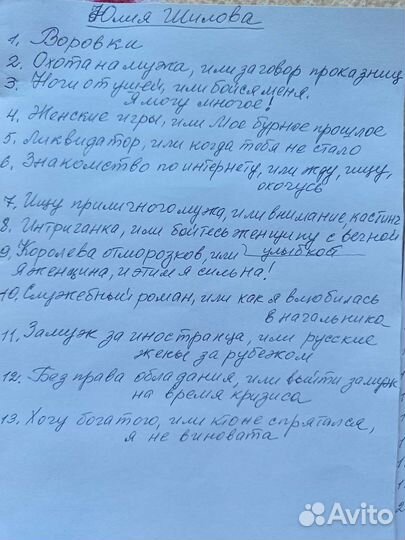 Юлия Шилова
1. Воровки
2. Охота на мужа, или заговор проказниц
3. Ноги от ушей, или бойся меня.
Я могу многое!
4. Женские игры, или Мое бурное прошлое
5. Ликвидатор, или когда тебя не стало
6. Знакомство по интернету, или жду, ищу,
охочусь
7. Ищу приличного мужа, или внимание, кастинг
8. Интриганка, или бойтесь женщину с вечной
улыбкой
9. Королева отморозков, или
я женщина, и этим я сильна!
10. Служебный роман, или как я влюбилась
в начальника
11. Замуж за иностранца, или русские
жены за рубежом
12. Без права обладания, или выйти замуж
на время кризиса
13. Хочу богатого, или кто не спрятался,
я не виновата
Avito